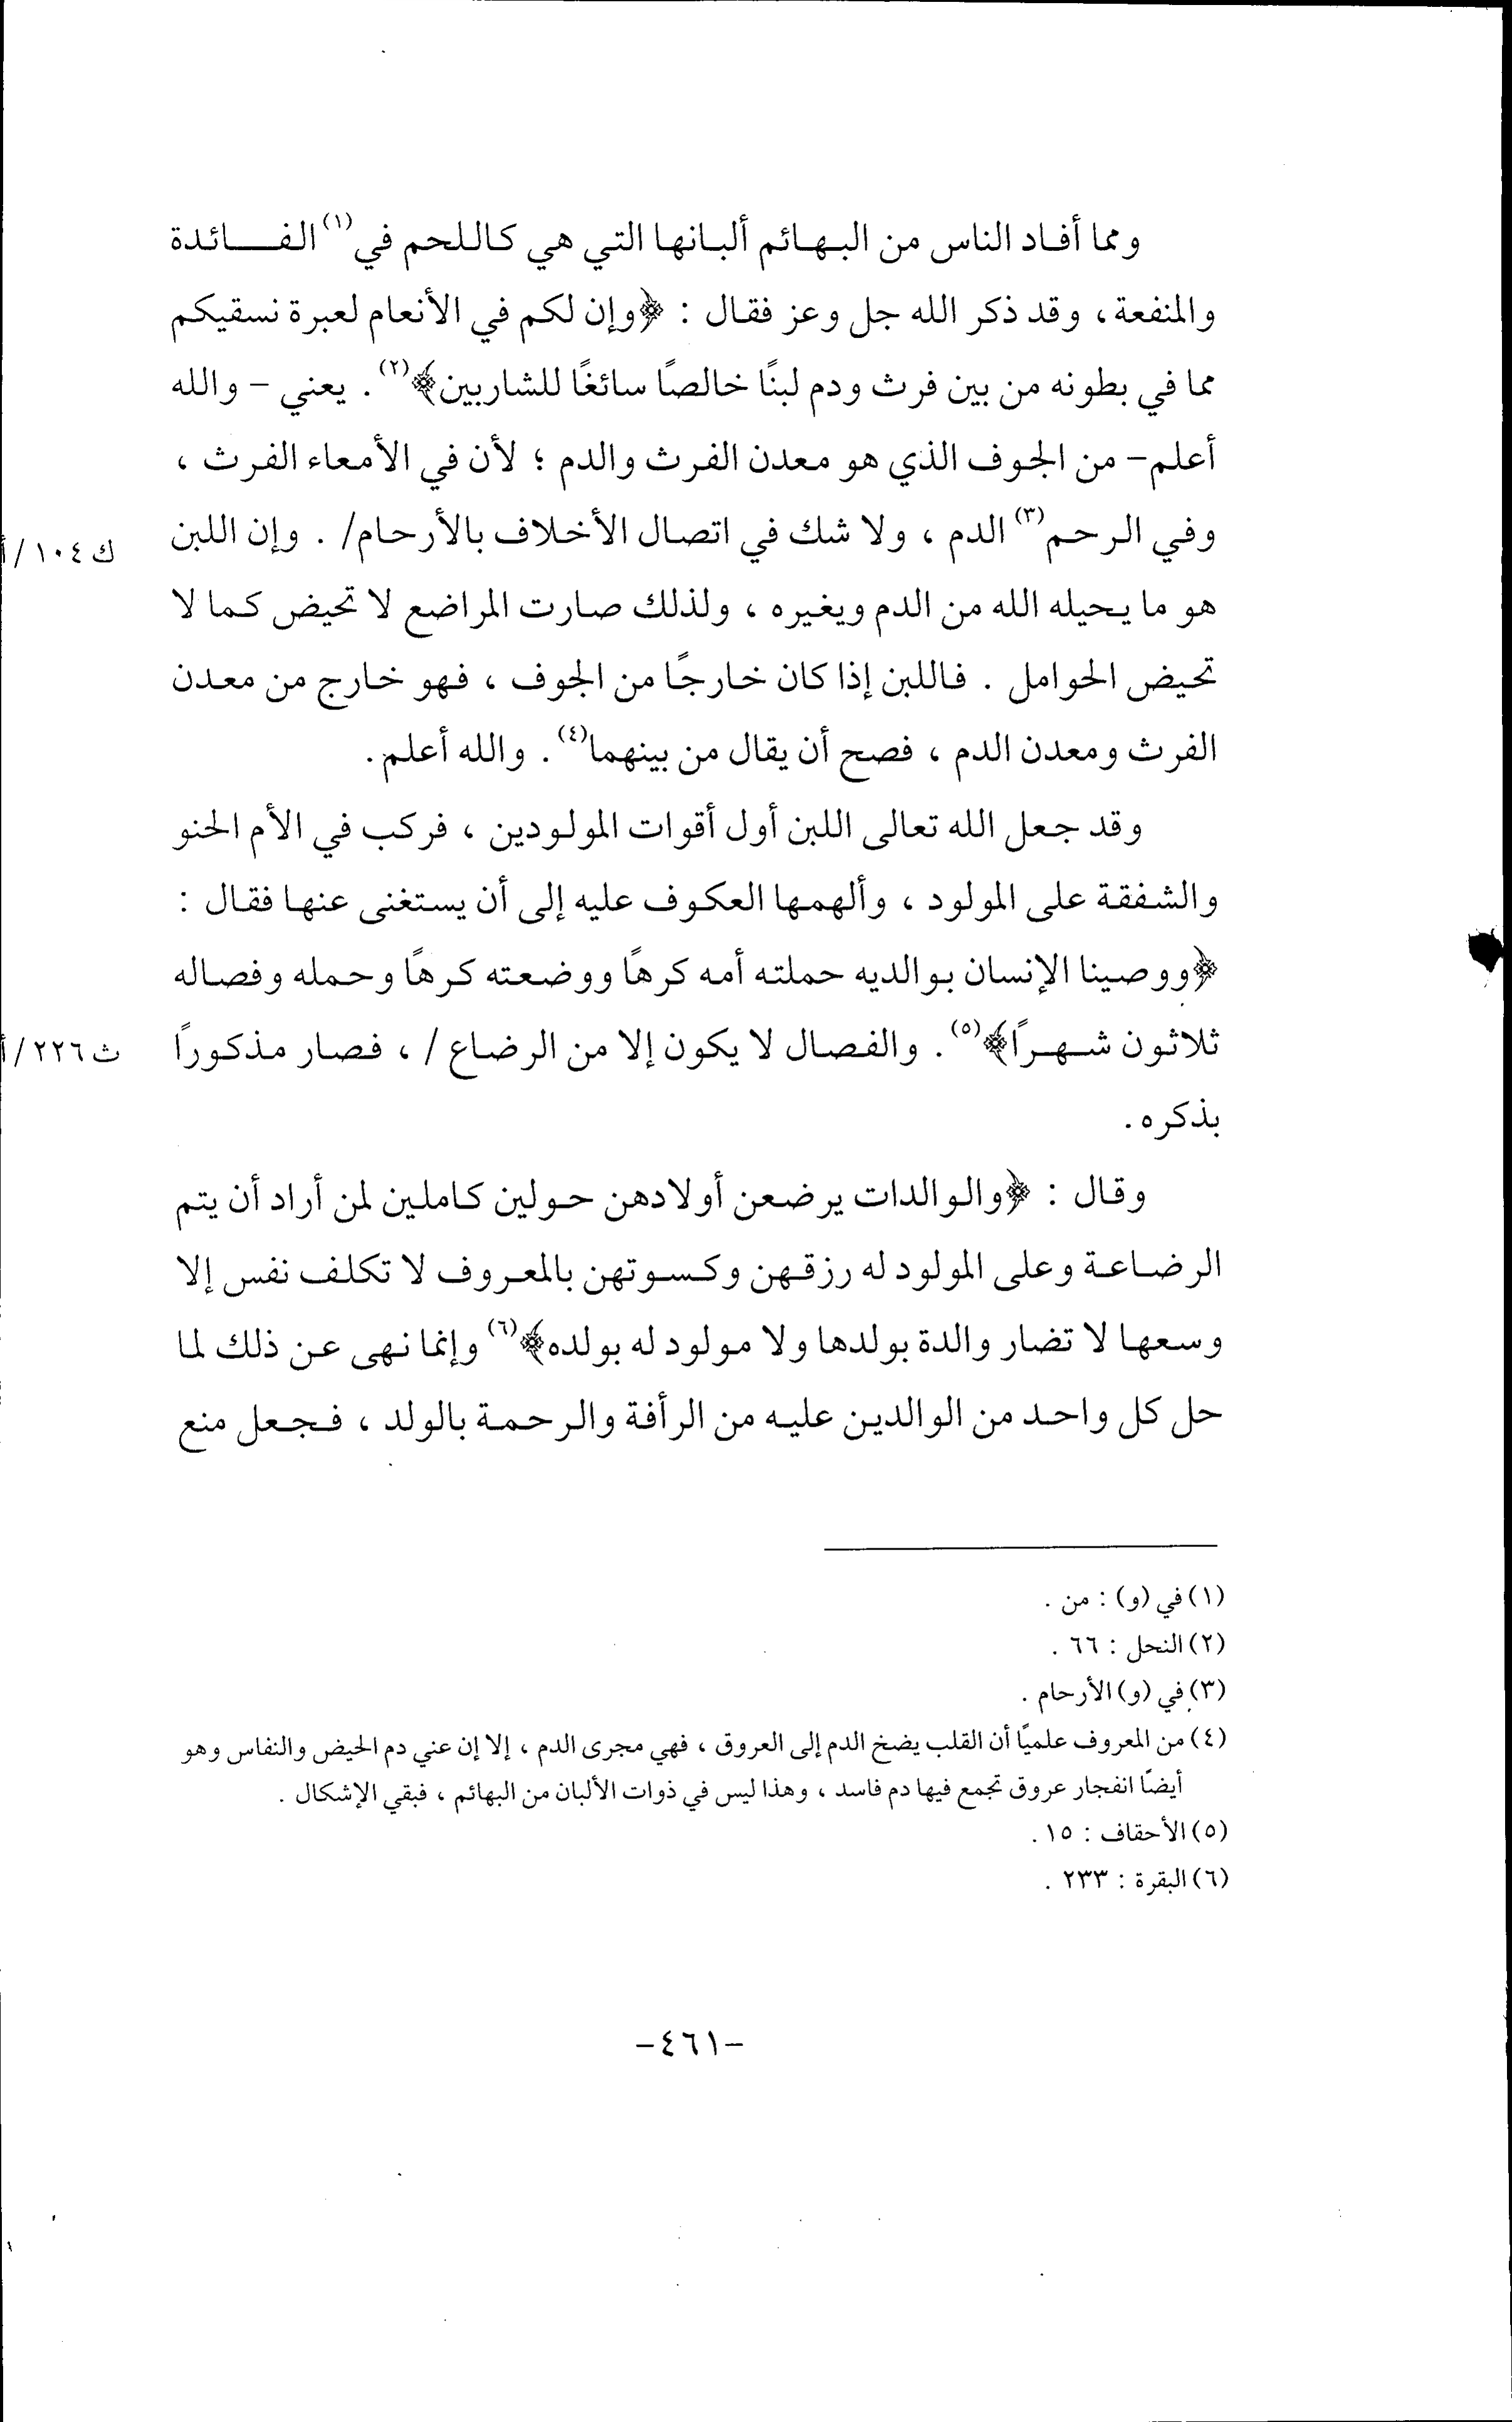 ومما أفاد الناس من البهائم ألبانها التي هي كاللحم في(١) الفائدة
والمنفعة، وقد ذكر الله جل وعز فقال : ﴿وإن لكم في الأنعام لعبرة نسقيكم
مما في بطونه من بين فرث ودم لبنًا خالصًا سائغًا للشاربين﴾(٢) . يعني – والله
أعلم – من الجوف الذي هو معدن الفرث والدم ؛ لأن في الأمعاء الفرث ،
وفي الرحم(٣) الدم ، ولا شك في اتصال الأخلاف بالأرحام/ . وإن اللبن
ك ١٠٤/أ
هو ما يحيله الله من الدم ويغيره ، ولذلك صارت المراضع لا تحيض كما لا
تحيض الحوامل . فاللبن إذا كان خارجًا من الجوف ، فهو خارج من معدن
الفرث ومعدن الدم ، فصح أن يقال من بينهما(٤) . والله أعلم.
وقد جعل الله تعالى اللبن أول أقوات المولودين ، فركب في الأم الحنو
والشفقة على المولود ، وألهمها العكوف عليه إلى أن يستغنى عنها فقال :
﴿ووصينا الإنسان بوالديه حملته أمه كرهًا ووضعته كرهًا وحمله وفصاله
ثلاثون شهرًا﴾(٥) . والفصال لا يكون إلا من الرضاع/ ، فصار مذكورًا
ث ٢٢٦/أ
بذكره .
وقال : ﴿والوالدات يرضعن أولادهن حولين كاملين لمن أراد أن يتم
الرضاعة وعلى المولود له رزقهن وكسوتهن بالمعروف لا تكلف نفس إلا
وسعها لا تضار والدة بولدها ولا مولود له بولده﴾(٦) وإنما نهى عن ذلك لما
حل كل واحد من الوالدين عليه من الرأفة والرحمة بالولد ، فجعل منع
(١) في (و) : من .
(٢) النحل : ٦٦ .
(٣) في (و) الأرحام .
(٤) من المعروف علميًا أن القلب يضخ الدم إلى العروق ، فهي مجرى الدم ، إلا إن عني دم الحيض والنفاس وهو
أيضًا انفجار عروق تجمع فيها دم فاسد ، وهذا ليس في ذوات الألبان من البهائم ، فبقي الإشكال .
(٥) الأحقاف : ١٥ .
(٦) البقرة : ٢٣٣ .
–٤٦١–